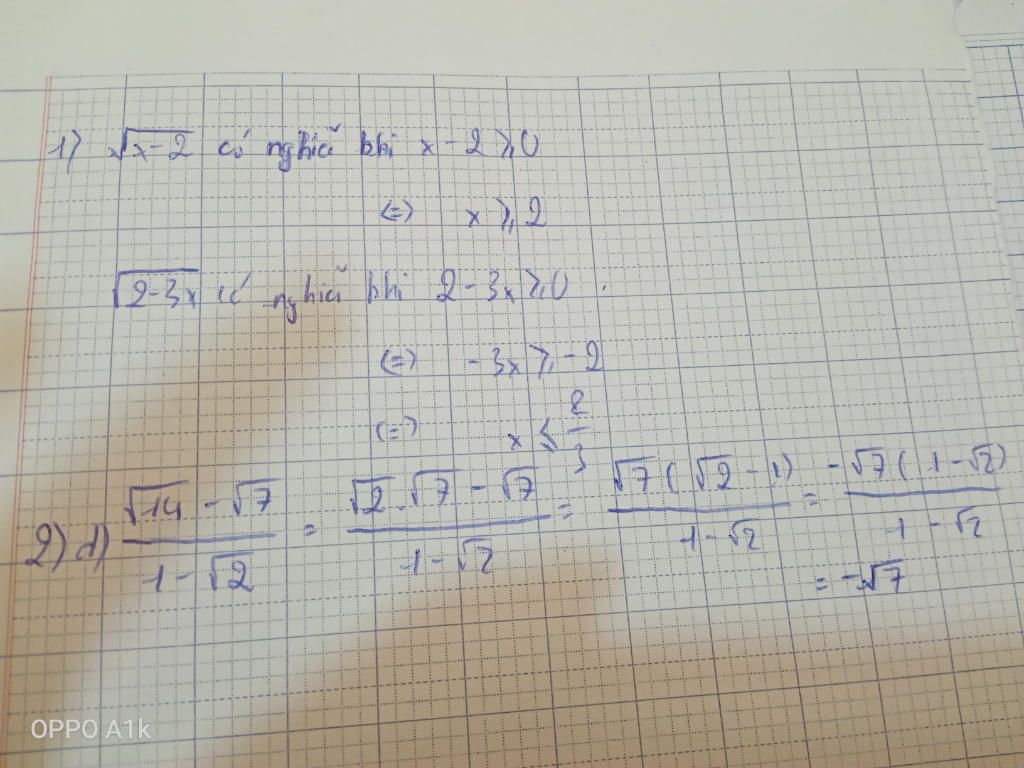 1) √x-2 có nghĩa khi x - 2 ⩾ 0
(=) x ⩾ 2
√2-3x có nghĩa khi 2 - 3x ⩾ 0
(=) -3x ⩾ -2
(=) x ⩽ 2/3
2) d) (√14 - √7)/(1 - √2) = (√2 . √7 - √7)/(1 - √2) = (√7(√2 - 1))/(1 - √2) = (-√7(1 - √2))/(1 - √2)
= -√7
OPPO A1k